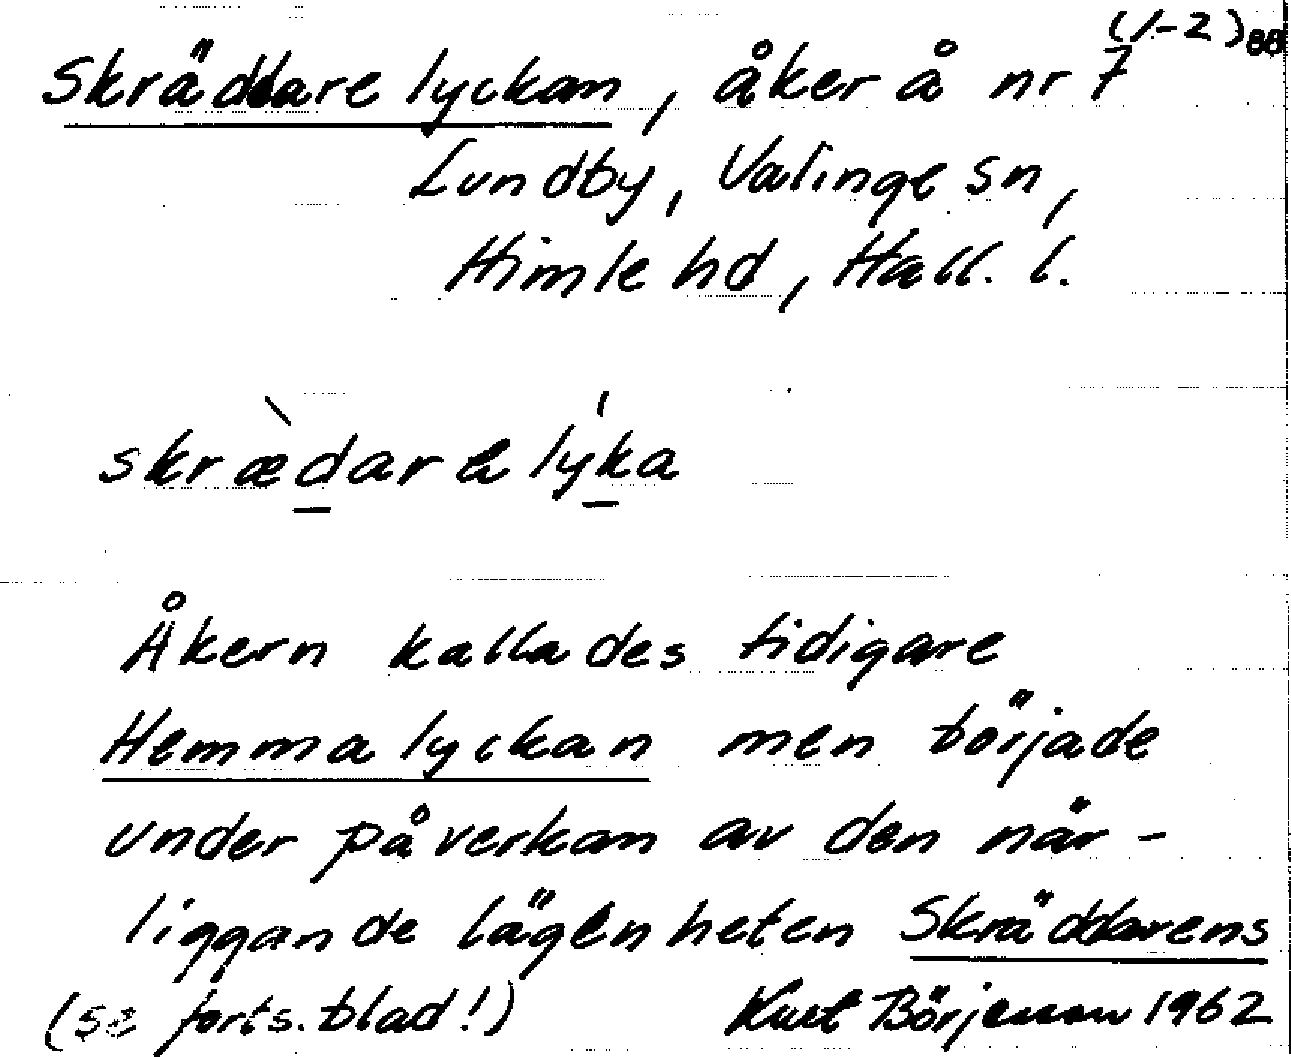 (1-2) 88
Skräddarelyckan, åker å nr 7
Lundby, Valinge sn,
Himle hd, Hall. l.
skræ̀darɑlýka
Åkern kallades tidigare
Hemmalyckan men började
under påverkan av den när-
liggande lägenheten Skräddarens
(se forts.blad!) Kurt Börjesson 1962